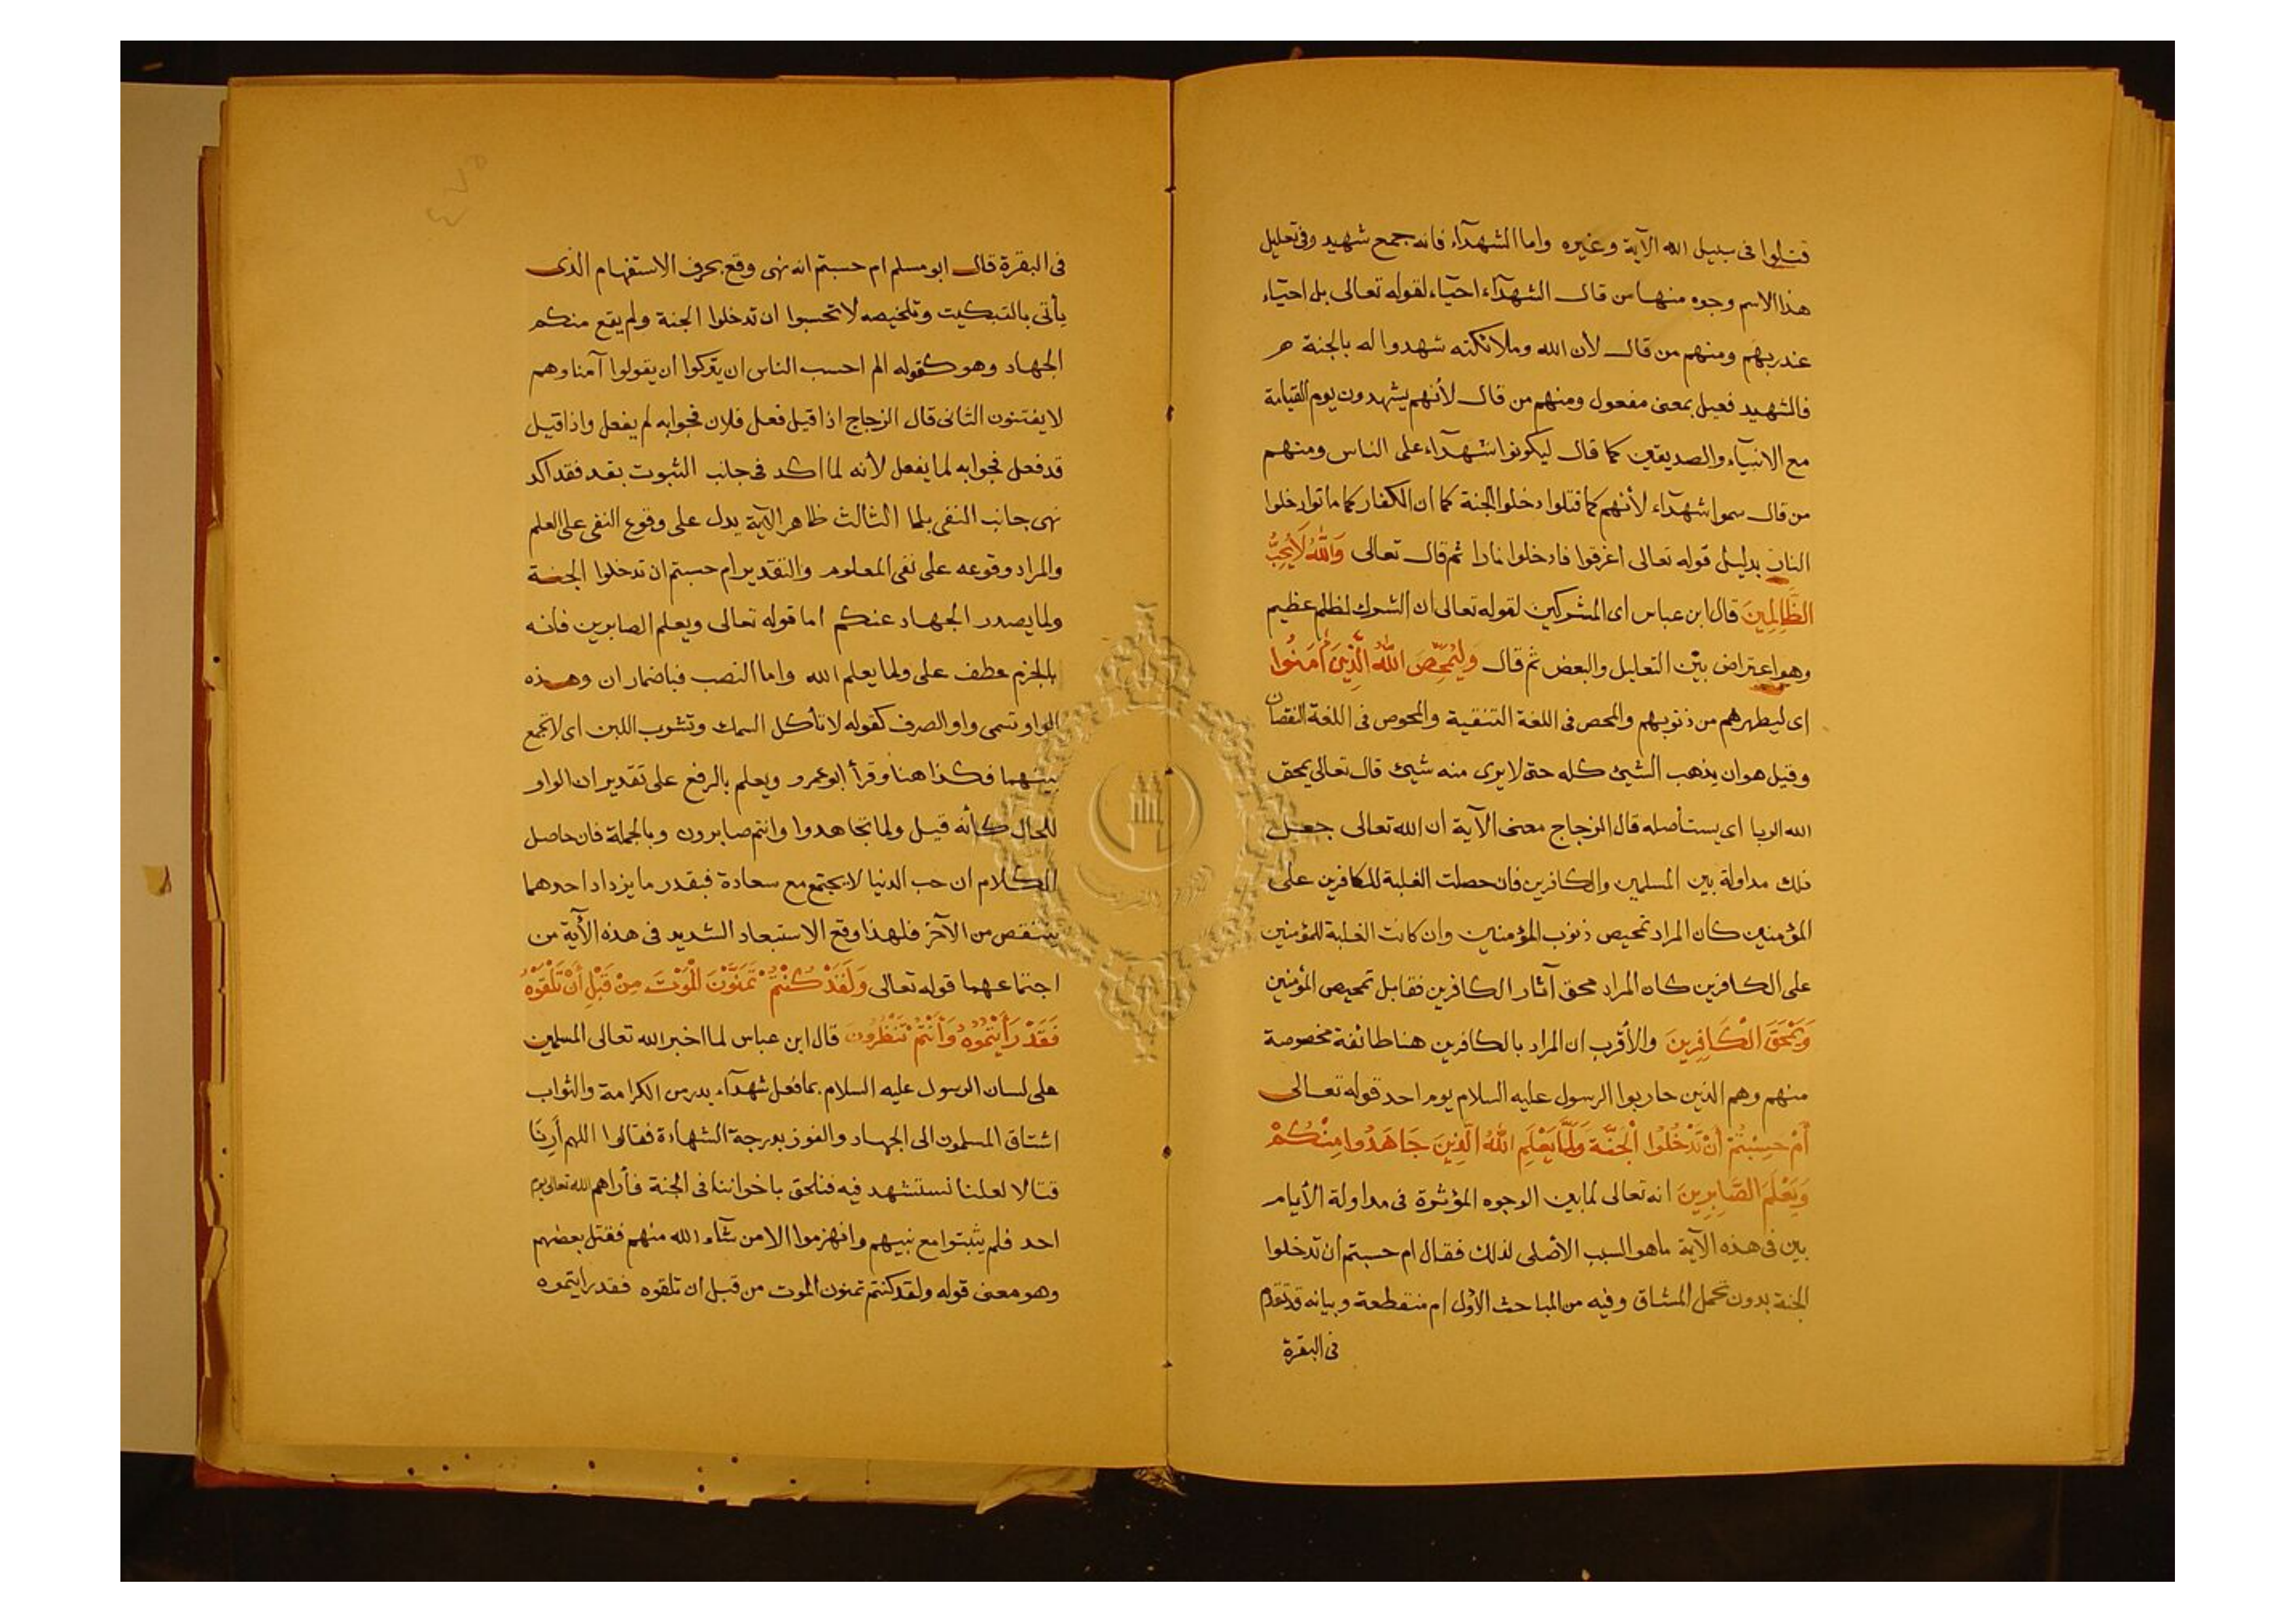 قتلوا فى سبيل الله الآية وغيره واما الشهدآء فانه جمع شهيد وفى تعليل
هذا الاسم وجوه منها من قال الشهدآء احيآء لقوله تعالى بل احيآء
عند ربهم ومنهم من قال لأن الله وملائكته شهدوا له بالجنة
فالشهيد فعيل بمعنى مفعول ومنهم من قال لأنهم يشهدون يوم القيامة
مع الانبيآء والصديقين كما قال ليكونوا شهدآء على الناس ومنهم
من قال سموا شهدآء لأنهم كما قتلوا دخلوا الجنة كما ان الكفار كما ماتوا دخلوا
النار بدليل قوله تعالى اغرقوا فادخلوا نارا ثم قال تعالى وَاللّٰهُ لَا يُحِبُّ
الظَّالِمِينَ قال ابن عباس اى المشركين لقوله تعالى ان الشرك لظلم عظيم
وهو اعتراض بين التعليل والبعض ثم قال وَلِيُمَحِّصَ اللّٰهُ الَّذِينَ أٰمَنُوا
اى ليطهرهم من ذنوبهم والمحص فى اللغة التنقية والمحوص فى اللغة النقصان
وقيل هو ان يذهب الشئ كله حتى لا يرى منه شئ قال تعالى يمحق
الله الربا اى يستأصله قال الزجاج معنى الآية ان الله تعالى جعل
تلك مداولة بين المسلمين والكافرين فان حصلت الغلبة للكافرين على
المؤمنين كان المراد تمحيص ذنوب المؤمنين وان كانت الغلبة للمؤمنين
على الكافرين كان المراد محق آثار الكافرين فقابل تمحيص المؤمنين
وَيَمْحَقَ الْكَافِرِينَ والأقرب ان المراد بالكافرين هنا طائفة مخصوصة
منهم وهم الذين حاربوا الرسول عليه السلام يوم احد قوله تعالى
أَمْ حَسِبْتُمْ أَنْ تَدْخُلُوا الْجَنَّةَ وَلَمَّا يَعْلَمِ اللّٰهُ الَّذِينَ جَاهَدُوا مِنْكُمْ
وَيَعْلَمَ الصَّابِرِينَ انه تعالى لما بين الوجوه المؤثرة فى مداولة الأيام
بين فى هذه الآية ما هو السبب الأصلى لذلك فقال ام حسبتم ان تدخلوا
الجنة بدون تحمل المشاق وفيه من المباحث الأول ام منقطعة وبيانه قد تقدم
فى البقرة
فى البقرة قال ابو مسلم ام حسبتم انه نهى وقع بحرف الاستفهام الذى
يأتى بالتبكيت وتلخيصه لا تحسبوا ان تدخلوا الجنة ولم يقع منكم
الجهاد وهو كقوله الم احسب الناس ان يتركوا ان يقولوا آمنا وهم
لا يفتنون الثانى قال الزجاج اذا قيل فعل فلان فجوابه لم يفعل واذا قيل
قد فعل فجوابه لما يفعل لأنه لما اكد فى جانب الثبوت بقد فقد اكد
نهى جانب النفى بلما الثالث ظاهر الآية يدل على وقوع النفى على العلم
والمراد وقوعه على نفى المعلوم والتقدير ام حسبتم ان تدخلوا الجنة
ولما يصدر الجهاد عنكم اما قوله تعالى ويعلم الصابرين فانه
بالجزم عطف على ولما يعلم الله واما النصب فباضمار ان وهذه
الواو تسمى واو الصرف كقوله لا تأكل السمك وتشرب اللبن اى لا تجمع
بينهما فكذا هنا وقرأ ابو عمرو ويعلم بالرفع على تقدير ان الواو
للحال كأنه قيل ولما تجاهدوا وانتم صابرون وبالجملة فان حاصل
الكلام ان حب الدنيا لا يجتمع مع سعادة فبقدر ما يزداد احدهما
ينتقص من الآخر فلهذا وقع الاستبعاد الشديد فى هذه الآية من
اجتماعهما قوله تعالى وَلَقَدْ كُنْتُمْ تَمَنَّوْنَ الْمَوْتَ مِنْ قَبْلِ أَنْ تَلْقَوْهُ
فَقَدْ رَأَيْتُمُوهُ وَأَنْتُمْ تَنْظُرُونَ قال ابن عباس لما اخبر الله تعالى المسلمين
على لسان الرسول عليه السلام بما فعل شهدآء بدر من الكرامة والثواب
اشتاق المسلمون الى الجهاد والفوز بدرجة الشهادة فقالوا اللهم أَرِنَا
قتالا لعلنا نستشهد فيه فنلحق باخواننا فى الجنة فأراهم الله تعالى يوم
احد فلم يثبتوا مع نبيهم وانهزموا الا من شآء الله منهم فقتل بعضهم
وهو معنى قوله ولقد كنتم تمنون الموت من قبل ان تلقوه فقد رايتموه